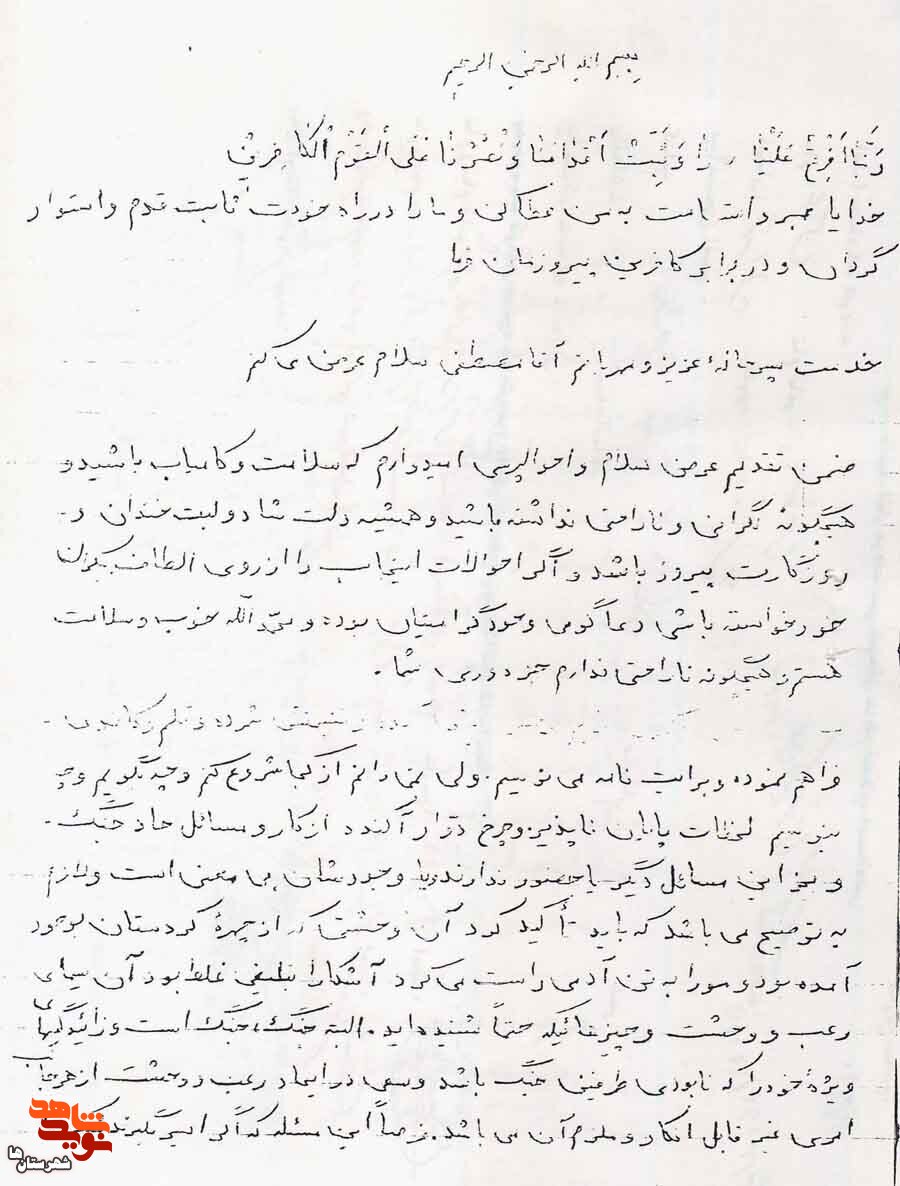 بسم الله الرحمن الرحیم
رَبَّنا اَفْرِغْ عَلَیْنا وَ ثَبِّتْ اَقْدامَنا وَنْصُرْنا عَلَی الْقَوْمِ الْکافِرینْ
خدایا صبر و استقامت به من عطا کن و ما را در راه خودت ثابت قدم و استوار
گردان و در برابر کافرین پیروزمان فرما
خدمت پسرخالهٔ عزیز و مهربانم آقا مصطفی سلام عرض می کنم
ضمن تقدیم عرض سلام و احوالپرسی امیدوارم که سلامت و کامیاب باشید و
هیچگونه نگرانی و ناراحتی نداشته باشید و همیشه دلت شاد و لبت خندان و
روزگارت پیروز باشد و اگر احوالات اینجانب را از روی الطاف بیکران
خود خواسته باشی دعاگوی وجود گرامیتان بوده و بحمدالله خوب و سلامت
هستم و هیچگونه ناراحتی ندارم جز دوری شما .
شمرده و قلم و کاغذی
فراهم نموده و برایت نامه می نویسم. ولی نمی دانم از کجا شروع کنم و چه بگویم و چه
بنویسم لحظات پایان ناپذیر و چرخ آکنده از کار و مسائل حاد جنگ
و بجز این مسائل دیگر یا حضور ندارند و یا وجودشان بی معنی است و لازم
به توضیح می باشد که باید تأکید کرد آن وحشتی که از چهرهٔ کردستان بوجود
آمده بود و مو را به تن آدمی راست می کرد آشکارا تبلیغی غلط بود آن سیمای
رعب و وحشت و چیزهائیکه حتماً شنیده اید. البته جنگ، جنگ است و زائیدگیهای
ویژهٔ خود را که نابودی طرفین جنگ باشد و سعی در ایجاد رعب و وحشت از هر جانب
امری غیر قابل انکار و ملزم آن می باشد. این مسئله که اگر اسیر بگیرند
نوید شاهد
شهرستان ها